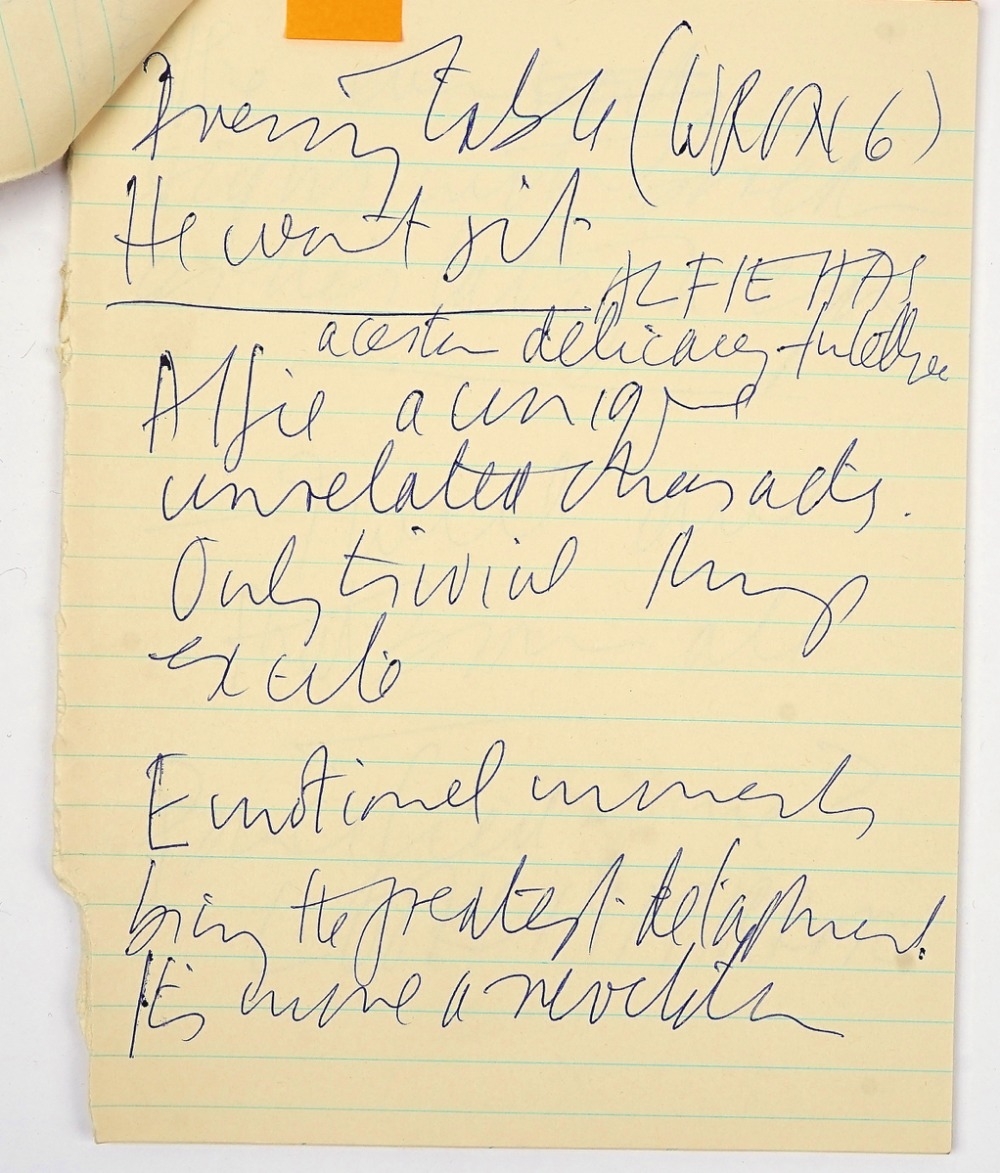 Dressing table (WRONG)
He won't sit
ALFIE HAS
a certain delicacy
Alfie a unique
unrelated
Only trivial things
excite
Emotional moments
bring the greatest detachment.
It's more a